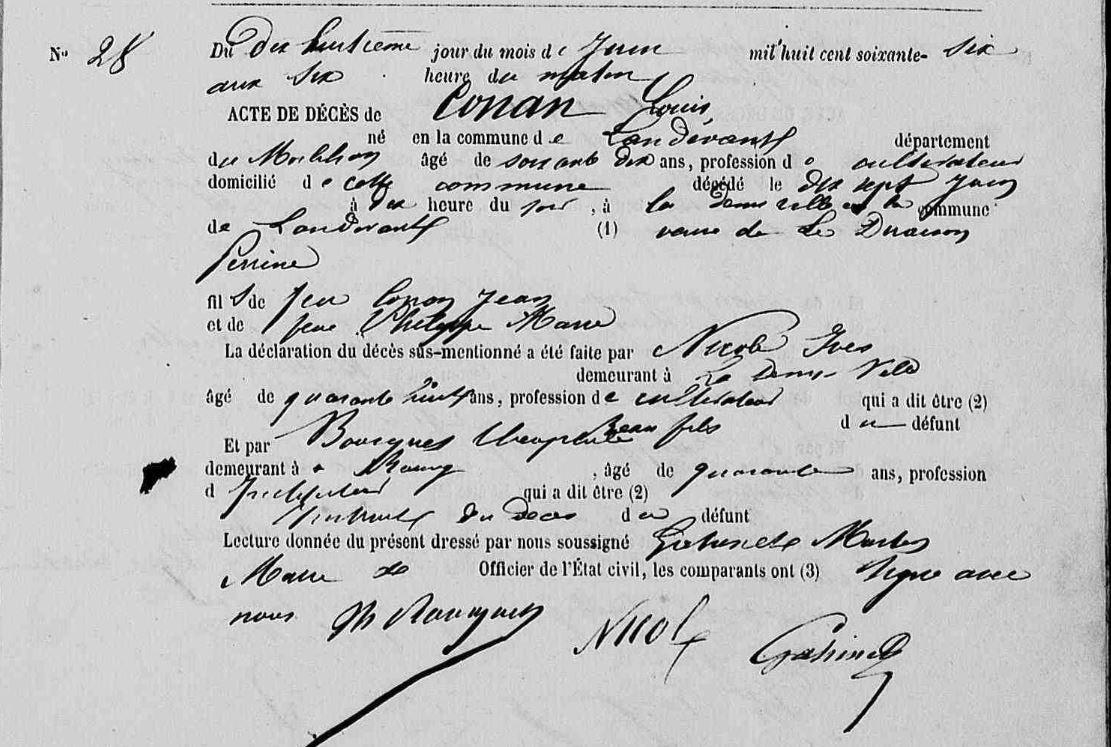 No 28 Du dix huitième jour du mois de Juin mil huit cent soixante- six
aux six heure du matin
ACTE DE DÉCÈS de Conan Louis
né en la commune de Landévant département
du Morbihan âgé de soixante dix ans, profession d cultivateur
domicilié de cette commune décédé le dix sept Juin
à dix heure du soir, à la demi ville en la commune
de Landévant (1) veuve de Le
Perrine
fils de feu Conan Jean
et de feue Philippe Marie
La déclaration du décès sus-mentionné a été faite par Nicol Yves
demeurant à La Demi-Ville
âgé de quarante huit ans, profession de cultivateur qui a dit être (2)
Beau fils du défunt
Et par
demeurant à Bourg, âgé de quarante ans, profession
d Instituteur qui a dit être (2)
du décès du défunt
Lecture donnée du présent dressé par nous soussigné Gahinet
Maire de Officier de l'État civil, les comparants ont (3) signé avec
nous
Nicol
Gahinet